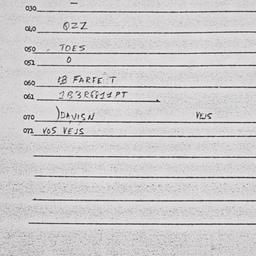 030
040 QZZ
050 TOES
052 0
060 FARFE T
061 1B3R6611PT
070 DAVISN VEJS
072 VOS VEJS